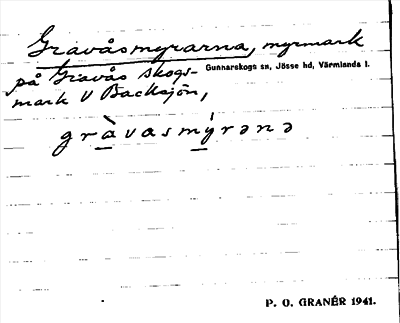 Gravåsmyrarna, myrmark
på Gravås skogs-
Gunnarskogs sn, Jösse hd, Värmlands l.
mark V Backsjön,
gràvasmýrənə
P. O. GRANÉR 1941.